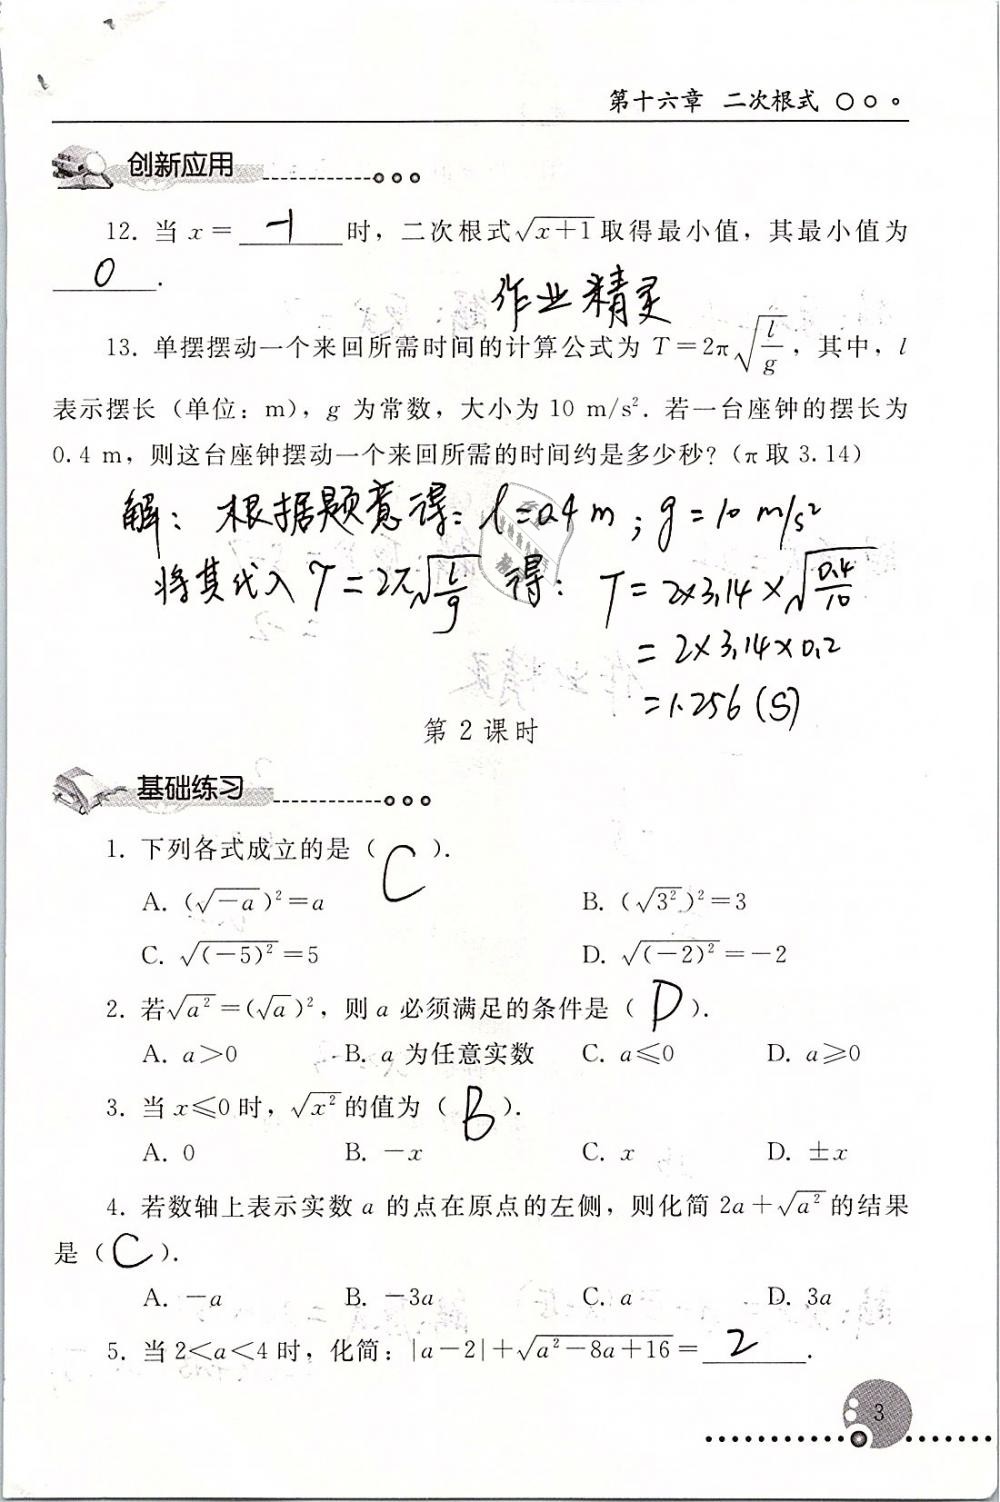 第十六章 二次根式
创新应用
12. 当 x = -1 时，二次根式√(x+1)取得最小值，其最小值为
0 .
作业精灵
13. 单摆摆动一个来回所需时间的计算公式为 T=2π√(l/g)，其中，l
表示摆长（单位：m），g 为常数，大小为 10 m/s². 若一台座钟的摆长为
0.4 m，则这台座钟摆动一个来回所需的时间约是多少秒？（π 取 3.14）
解：根据题意得：l=0.4m；g=10 m/s²
将其代入 T=2π√(l/g) 得：T=2×3.14×√(0.4/10)
=2×3.14×0.2
=1.256(S)
第 2 课时
基础练习
1. 下列各式成立的是（ C ）.
A. (√(-a))²=a B. (√(3²))²=3
C. √((-5)²)=5 D. √((-2)²)=-2
2. 若√(a²)=(√a)²，则 a 必须满足的条件是（ D ）.
A. a>0 B. a 为任意实数 C. a≤0 D. a≥0
3. 当 x≤0 时，√(x²)的值为（ B ）.
A. 0 B. -x C. x D. ±x
4. 若数轴上表示实数 a 的点在原点的左侧，则化简 2a+√(a²)的结果
是（ C ）.
A. -a B. -3a C. a D. 3a
5. 当 2<a<4 时，化简：|a-2|+√(a²-8a+16)= 2 .
3